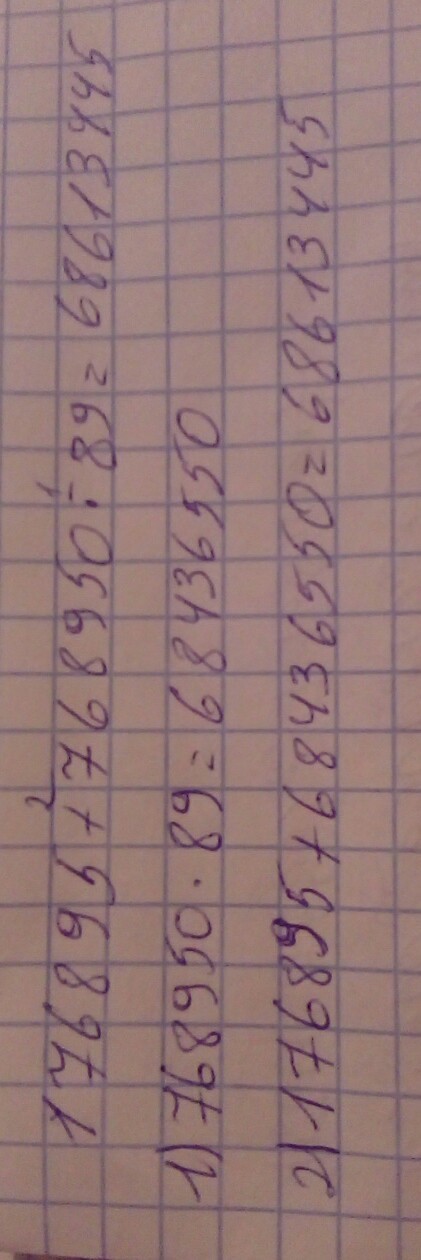 176895 +² 768950 ·¹ 89 = 68613445
1) 768950 · 89 = 68436550
2) 176895 + 68436550 = 68613445